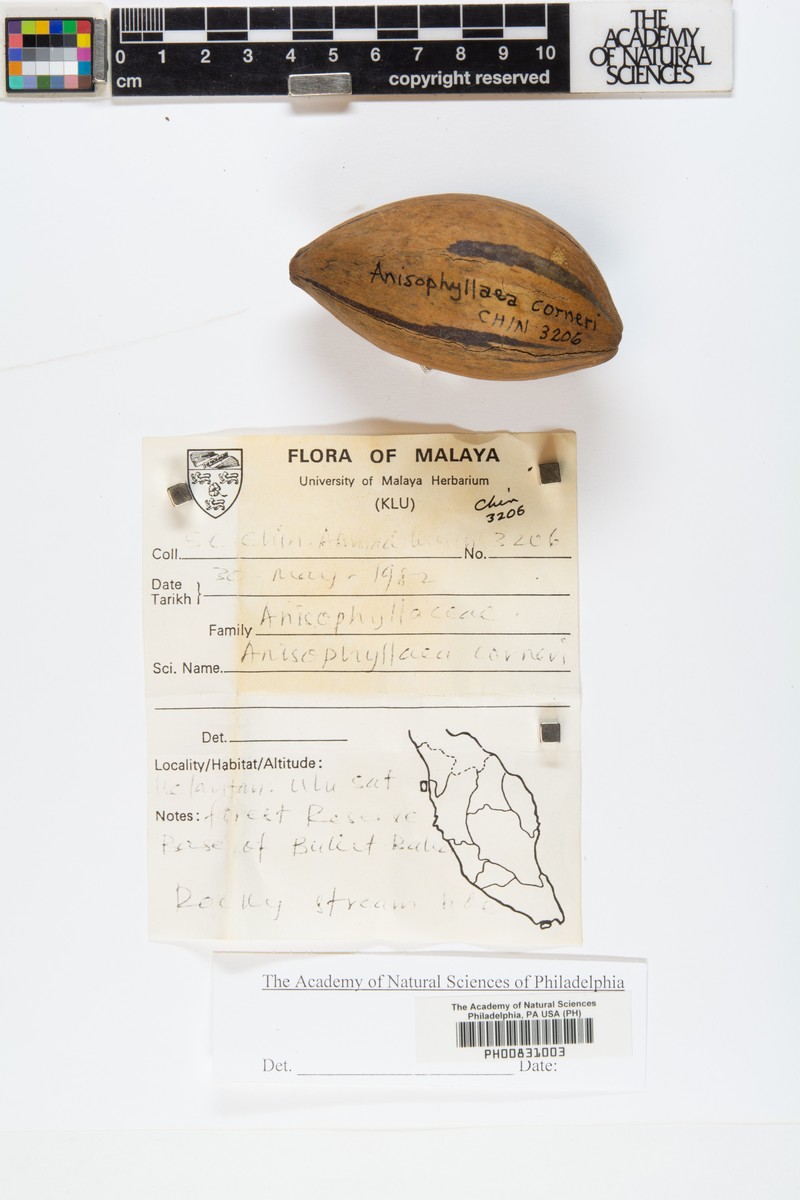 0 1 2 3 4 5 6 7 8 9 10
cm
copyright reserved
THE
ACADEMY
OF NATURAL
SCIENCES
Anisophyllaea corneri
CHIN 3206
FLORA OF MALAYA
University of Malaya Herbarium
(KLU)
Chin
3206
Coll. S.C. Chin No. 3206
Date
Tarikh 30 May - 1982
Family Anisophyllaceae
Sci. Name. Anisophyllaea corneri
Det.
Locality/Habitat/Altitude:
Kelantan. Ulu Sat
Notes: forest Reserve
Base of Bukit
Rocky stream
The Academy of Natural Sciences of Philadelphia
The Academy of Natural Sciences
Philadelphia, PA USA (PH)
PH00831003
Det. Date: